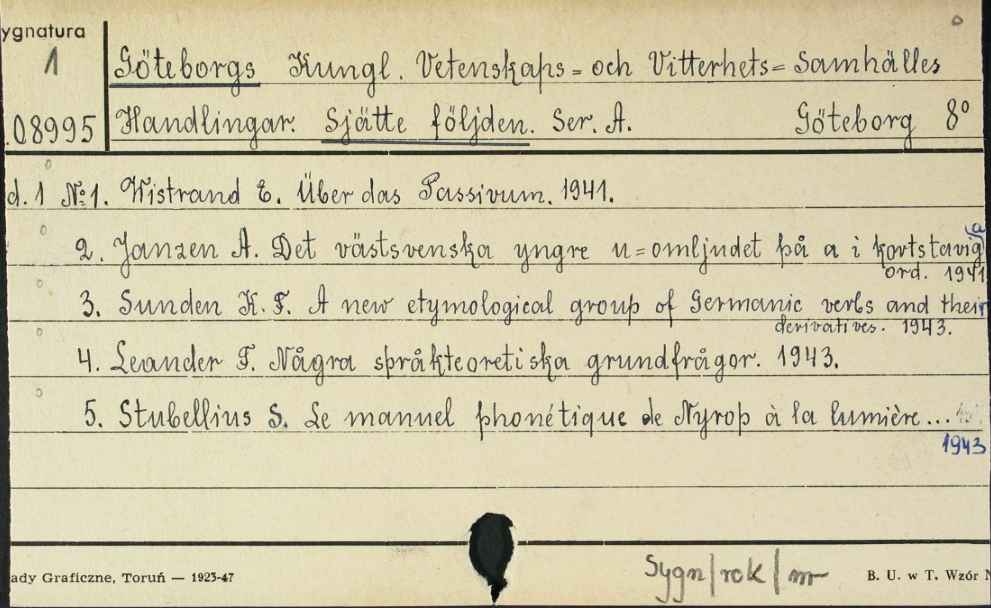 ygnatura
1
08995
Göteborgs Kungl. Vetenskaps= och Vitterhets= Samhälles
Handlingar. Sjätte följden. Ser. A. Göteborg 8°
d. 1 No 1. Wistrand E. Über das Passivum. 1941.
2. Janzen A. Det västsvenska yngre u=omljudet på a i kortstaviga
ord. 1941
3. Sunden K. F. A new etymological group of Germanic verbs and their
derivatives. 1943.
4. Leander F. Några språkteoretiska grundfrågor. 1943.
5. Stubellius S. Le manuel phonétique de Nyrop à la lumière...
1943
Sygn/rok/nr
ady Graficzne, Toruń — 1923-47
B. U. w T. Wzór N